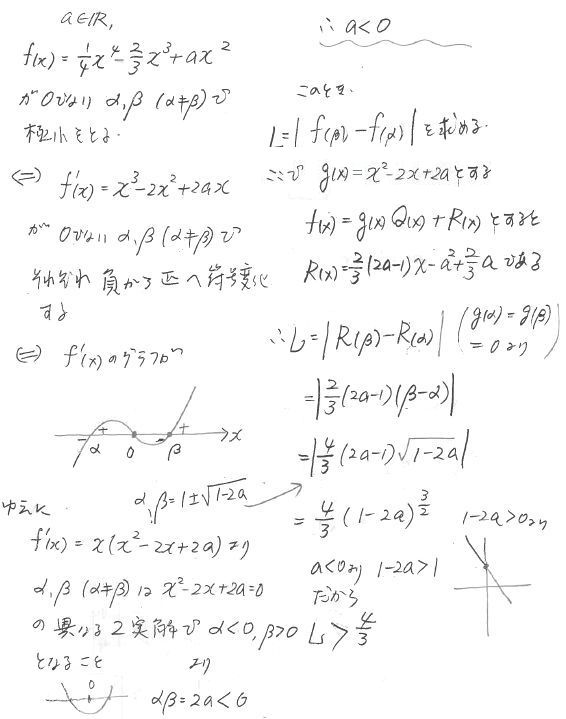 a∈ℝ,
f(x)=1/4x⁴-2/3x³+ax²
が0でない α,β (α≠β)で
極小をとる.
⇔ f'(x)=x³-2x²+2ax
が 0でない α,β (α≠β)で
それぞれ 負から正へ符号変化
する
⇔ f'(x)のグラフが
- + - + x
α 0 β
α,β=1±√(1-2a)
ゆえに
f'(x)=x(x²-2x+2a)より
α,β (α≠β)は x²-2x+2a=0
の異なる2実解で α<0,β>0
となること より
0
αβ=2a<0
∴ a<0
このとき.
L=|f(β)-f(α)|を求める.
ここで g(x)=x²-2x+2aとする
f(x)=g(x)Q(x)+R(x)とすると
R(x)=2/3(2a-1)x-a²+2/3aである
∴L=|R(β)-R(α)| (g(α)=g(β)
=0より)
=|2/3(2a-1)(β-α)|
=|4/3(2a-1)√(1-2a)|
=4/3(1-2a)^(3/2) 1-2a>0より
a<0より 1-2a>1
だから
L>4/3